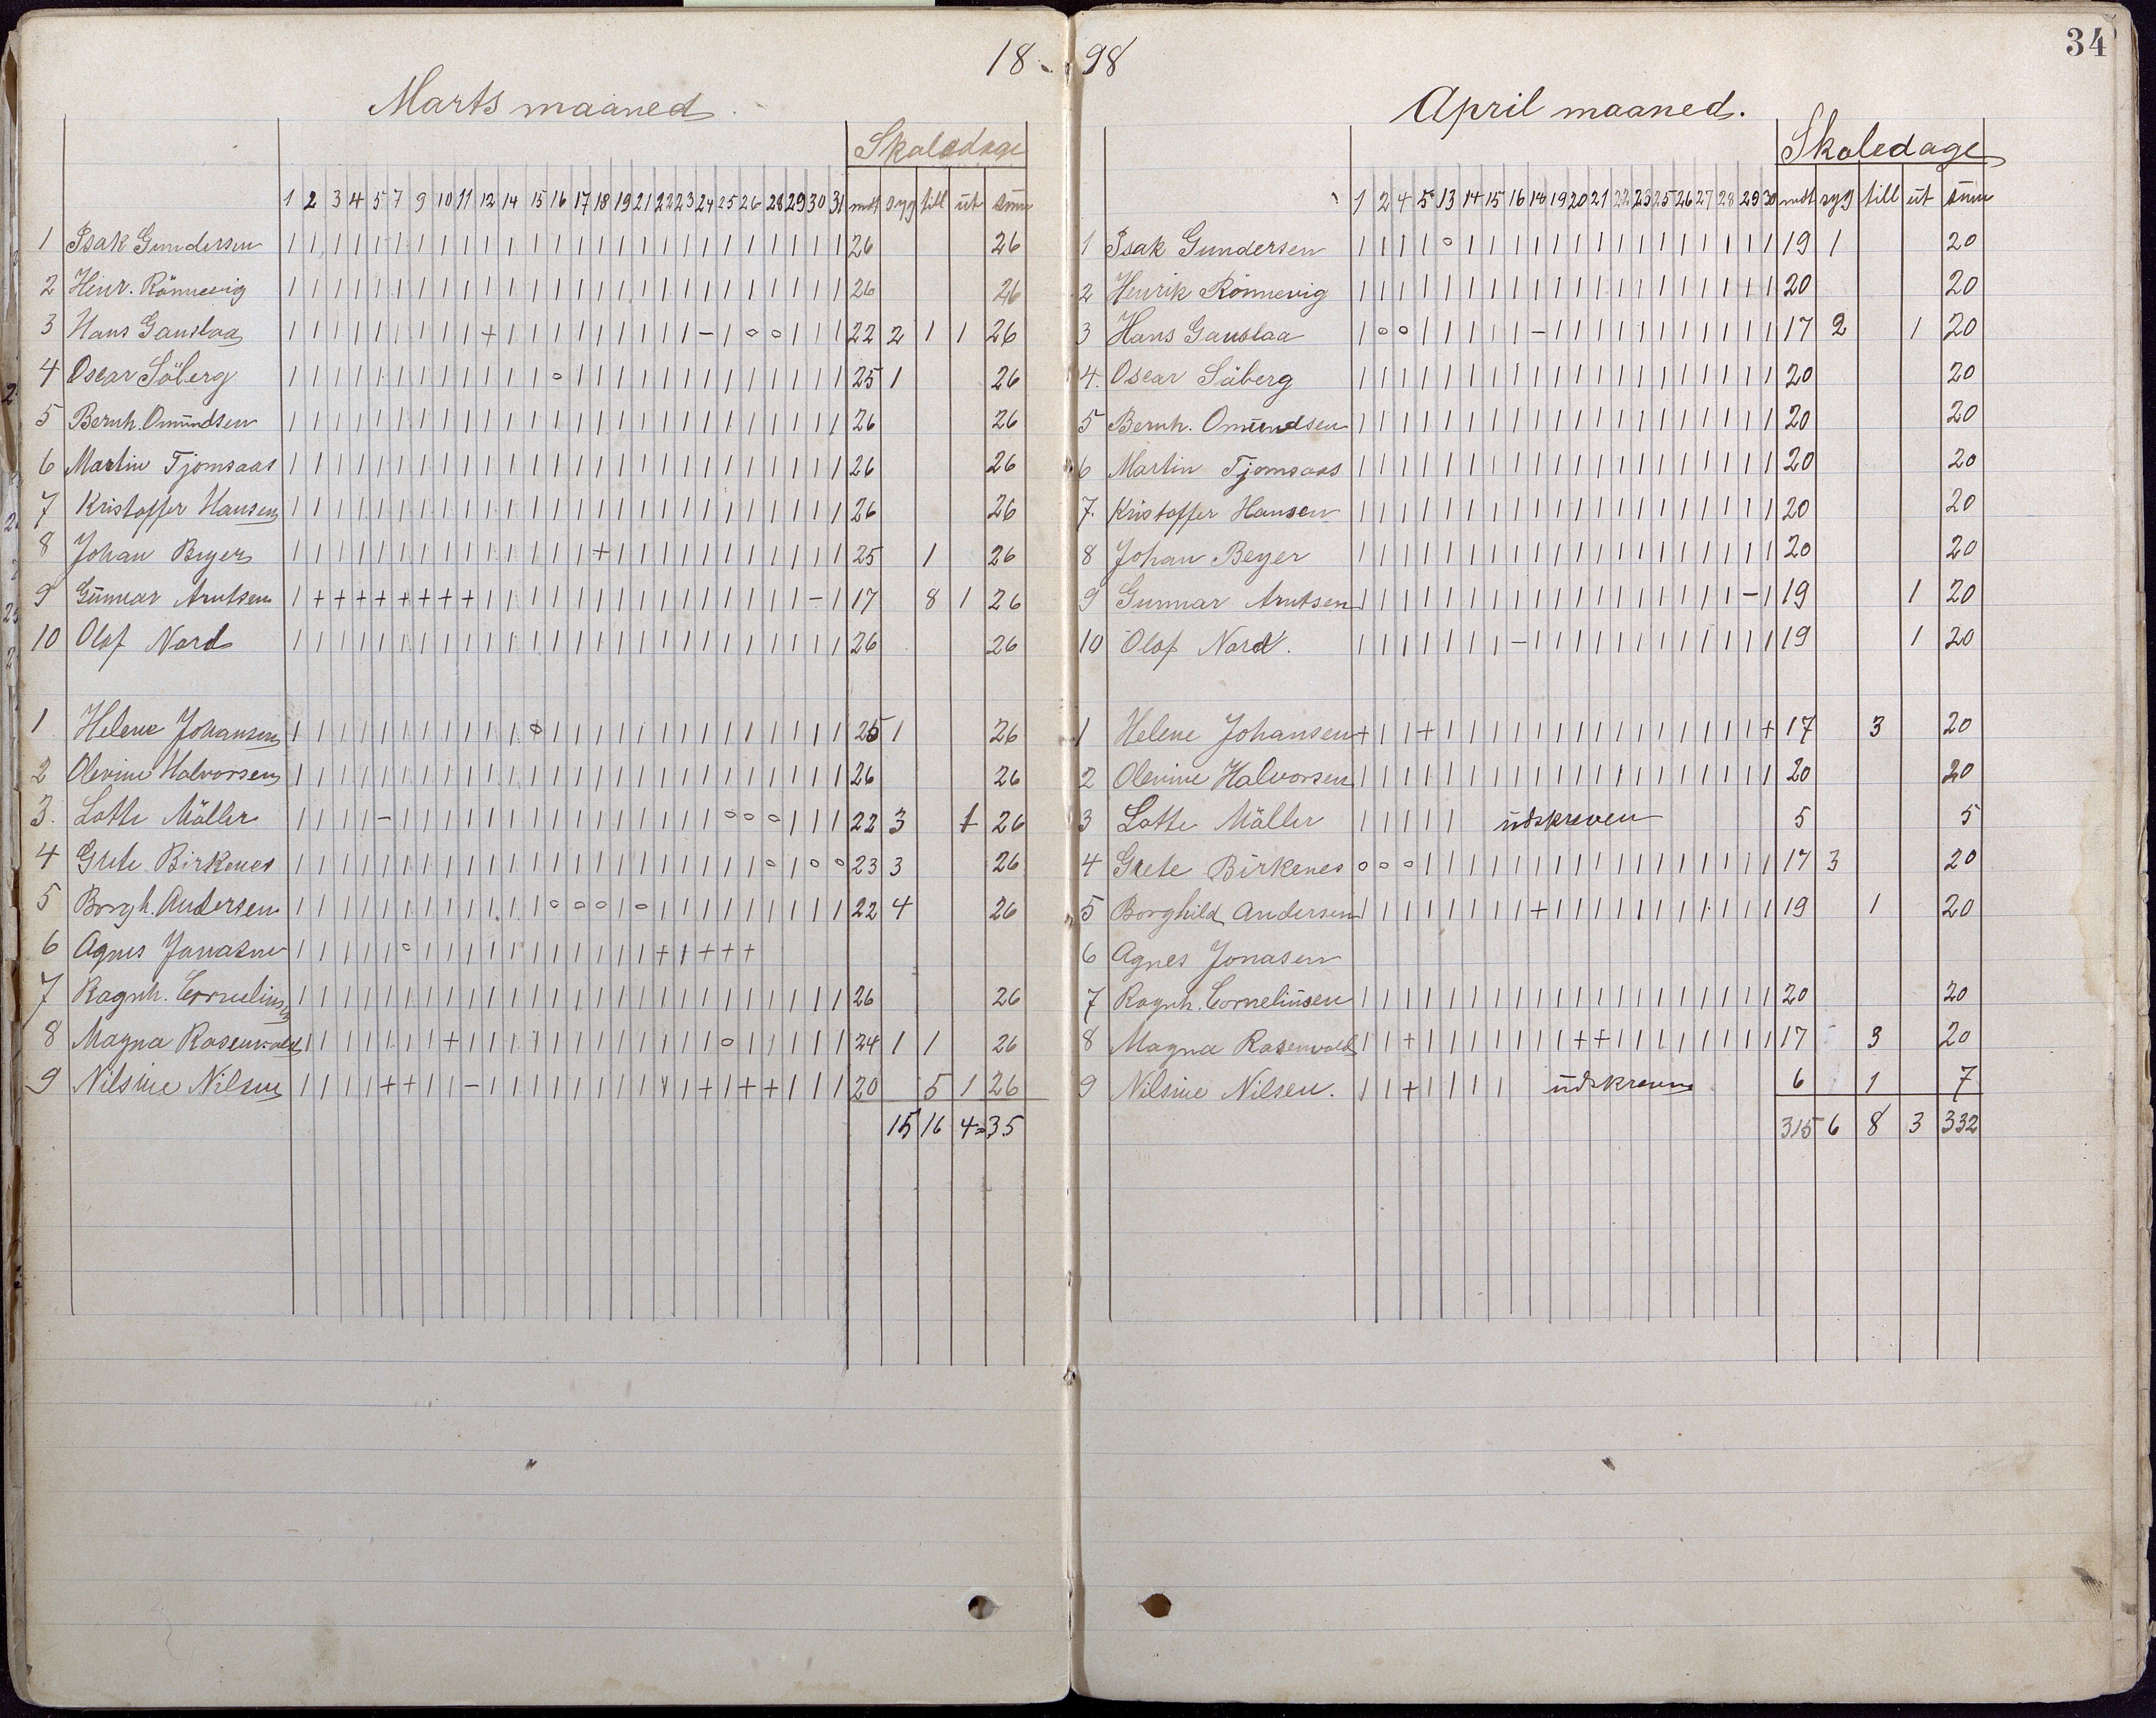 18-98
34
Marts maaned.
Skoledage
1 2 3 4 5 7 9 10 11 12 14 15 16 17 18 19 21 22 23 24 25 26 28 29 30 31 mdt syg till ut sum
1 Isak Gundersen | | | | | | | | | | | | | | | | | | | | | | | | | | 26 26
2 Henr. Rönnevig | | | | | | | | | | | | | | | | | | | | | | | | | | 26 26
3 Hans Gauslaa | | | | | | | | | + | | | | | | | | | - | o o | | | 22 2 1 1 26
4 Oscar Söberg | | | | | | | | | | | | o | | | | | | | | | | | | | 25 1 26
5 Bernh. Omundsen | | | | | | | | | | | | | | | | | | | | | | | | | | 26 26
6 Martin Tjomsaas | | | | | | | | | | | | | | | | | | | | | | | | | | 26 26
7 Kristoffer Hansen | | | | | | | | | | | | | | | | | | | | | | | | | | 26 26
8 Johan Beyer | | | | | | | | | | | | | | + | | | | | | | | | | | 25 1 26
9 Gunnar Arntsen | + + + + + + + + | | | | | | | | | | | | | | | - | 17 8 1 26
10 Olaf Nord | | | | | | | | | | | | | | | | | | | | | | | | | | 26 26
1 Helene Johansen | | | | | | | | | | | o | | | | | | | | | | | | | | 25 1 26
2 Olevine Halvorsen | | | | | | | | | | | | | | | | | | | | | | | | | | 26 26
3. Lotte Möller | | | | - | | | | | | | | | | | | | | | o o o | | | 22 3 1 26
4 Grete Birkenes | | | | | | | | | | | | | | | | | | | | | | o | o o 23 3 26
5 Borgh. Andersen | | | | | | | | | | | | o o o | o | | | | | | | | | 22 4 26
6 Agnes Jonasen | | | | | o | | | | | | | | | | | + | + + +
7 Ragnh. Corneliusen | | | | | | | | | | | | | | | | | | | | | | | | | | 26 26
8 Magna Rosenvold | | | | | | | + | | | | | | | | | | | | o | | | | | 24 1 1 26
9 Nilsine Nilsen | | | | + + | | - | | | | | | | | | | + | + + | | | 20 5 1 26
15 16 4=35
April maaned.
Skoledage
1 2 4 5 13 14 15 16 18 19 20 21 22 23 25 26 27 28 29 30 mdt syg till ut sum
1 Isak Gundersen | | | | o | | | | | | | | | | | | | | | 19 1 20
2 Henrik Rönnevig | | | | | | | | | | | | | | | | | | | | 20 20
3 Hans Gauslaa | o o | | | | | - | | | | | | | | | | | 17 2 1 20
4. Oscar Söberg | | | | | | | | | | | | | | | | | | | | 20 20
5 Bernh. Omundsen | | | | | | | | | | | | | | | | | | | | 20 20
6 Martin Tjomsaas | | | | | | | | | | | | | | | | | | | | 20 20
7. Kristoffer Hansen | | | | | | | | | | | | | | | | | | | | 20 20
8 Johan Beyer | | | | | | | | | | | | | | | | | | | | 20 20
9 Gunnar Arntsen | | | | | | | | | | | | | | | | | | - | 19 1 20
10 Olaf Nord. | | | | | | | - | | | | | | | | | | | | 19 1 20
1 Helene Johansen + | | + | | | | | | | | | | | | | | | + 17 3 20
2 Olevine Halvorsen | | | | | | | | | | | | | | | | | | | | 20 20
3 Lotte Möller | | | | | udskreven 5 5
4 Grete Birkenes o o o | | | | | | | | | | | | | | | | | 17 3 20
5 Borghild Andersen | | | | | | | | + | | | | | | | | | | | 19 1 20
6 Agnes Jonasen
7 Ragnh. Corneliusen | | | | | | | | | | | | | | | | | | | | 20 20
8 Magna Rosenvold | | + | | | | | | | + + | | | | | | | | 17 3 20
9 Nilsine Nilsen. | | + | | | | udskreven 6 1 7
315 6 8 3 332